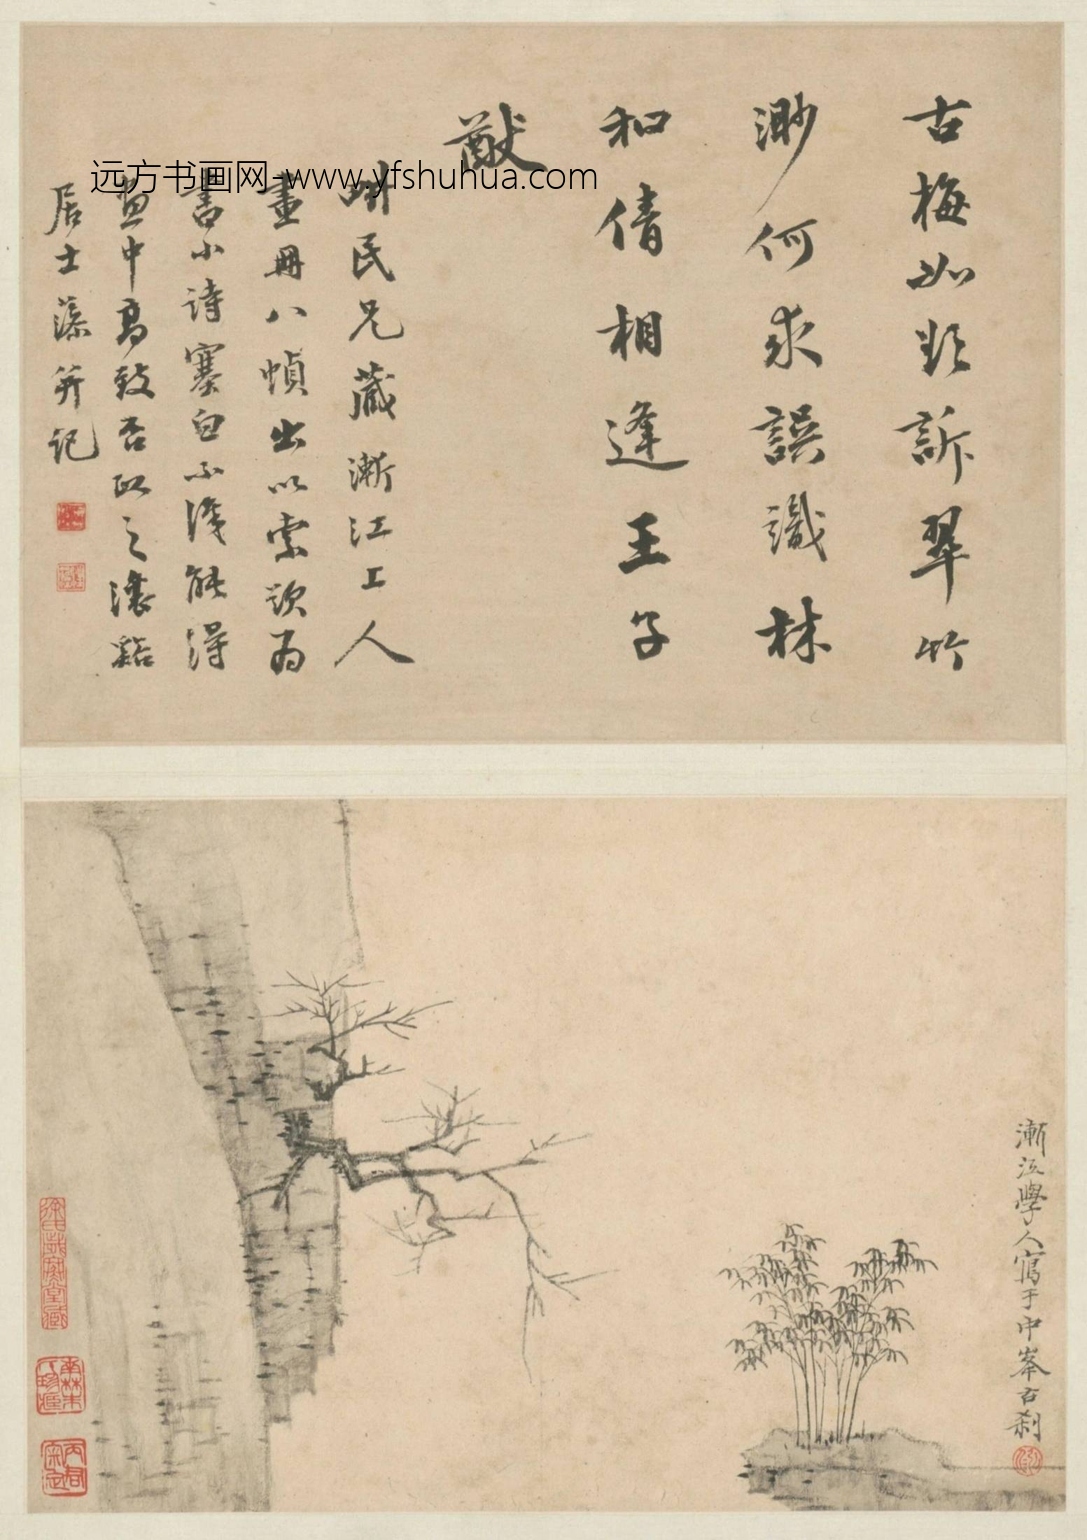 古梅如欲訴翠竹
渺何求誤識林
和倩相逢王子
猷
畊民兄藏漸江上人
畫冊八幀出以索題為
書小詩塞白不識能得
畫中高致否政之瀼谿
居士藻并記
远方书画网-www.yfshuhua.com
漸江學人寫于中峯古刹